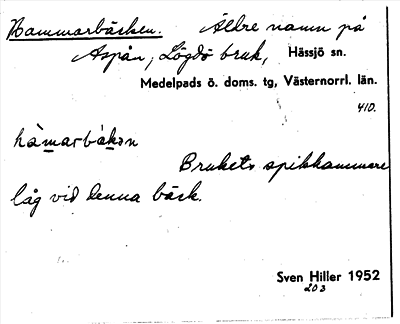 Hammarbäcken. Äldre namn på
Aspån, Lögdö bruk, Hässjö sn.
Medelpads ö. doms. tg, Västernorrl. län.
410.
hàmarbàkən
Brukets spikhammare
låg vid denna bäck.
Sven Hiller 1952
203